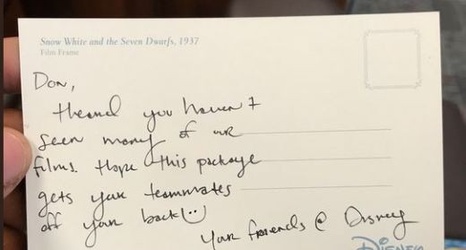 Snow White and the Seven Dwarfs, 1937
Film Frame
Don,
Heard you haven't
seen many of our
films. Hope this package
gets your teammates
off your back! :)
Your friends @ Disney
DISNEY